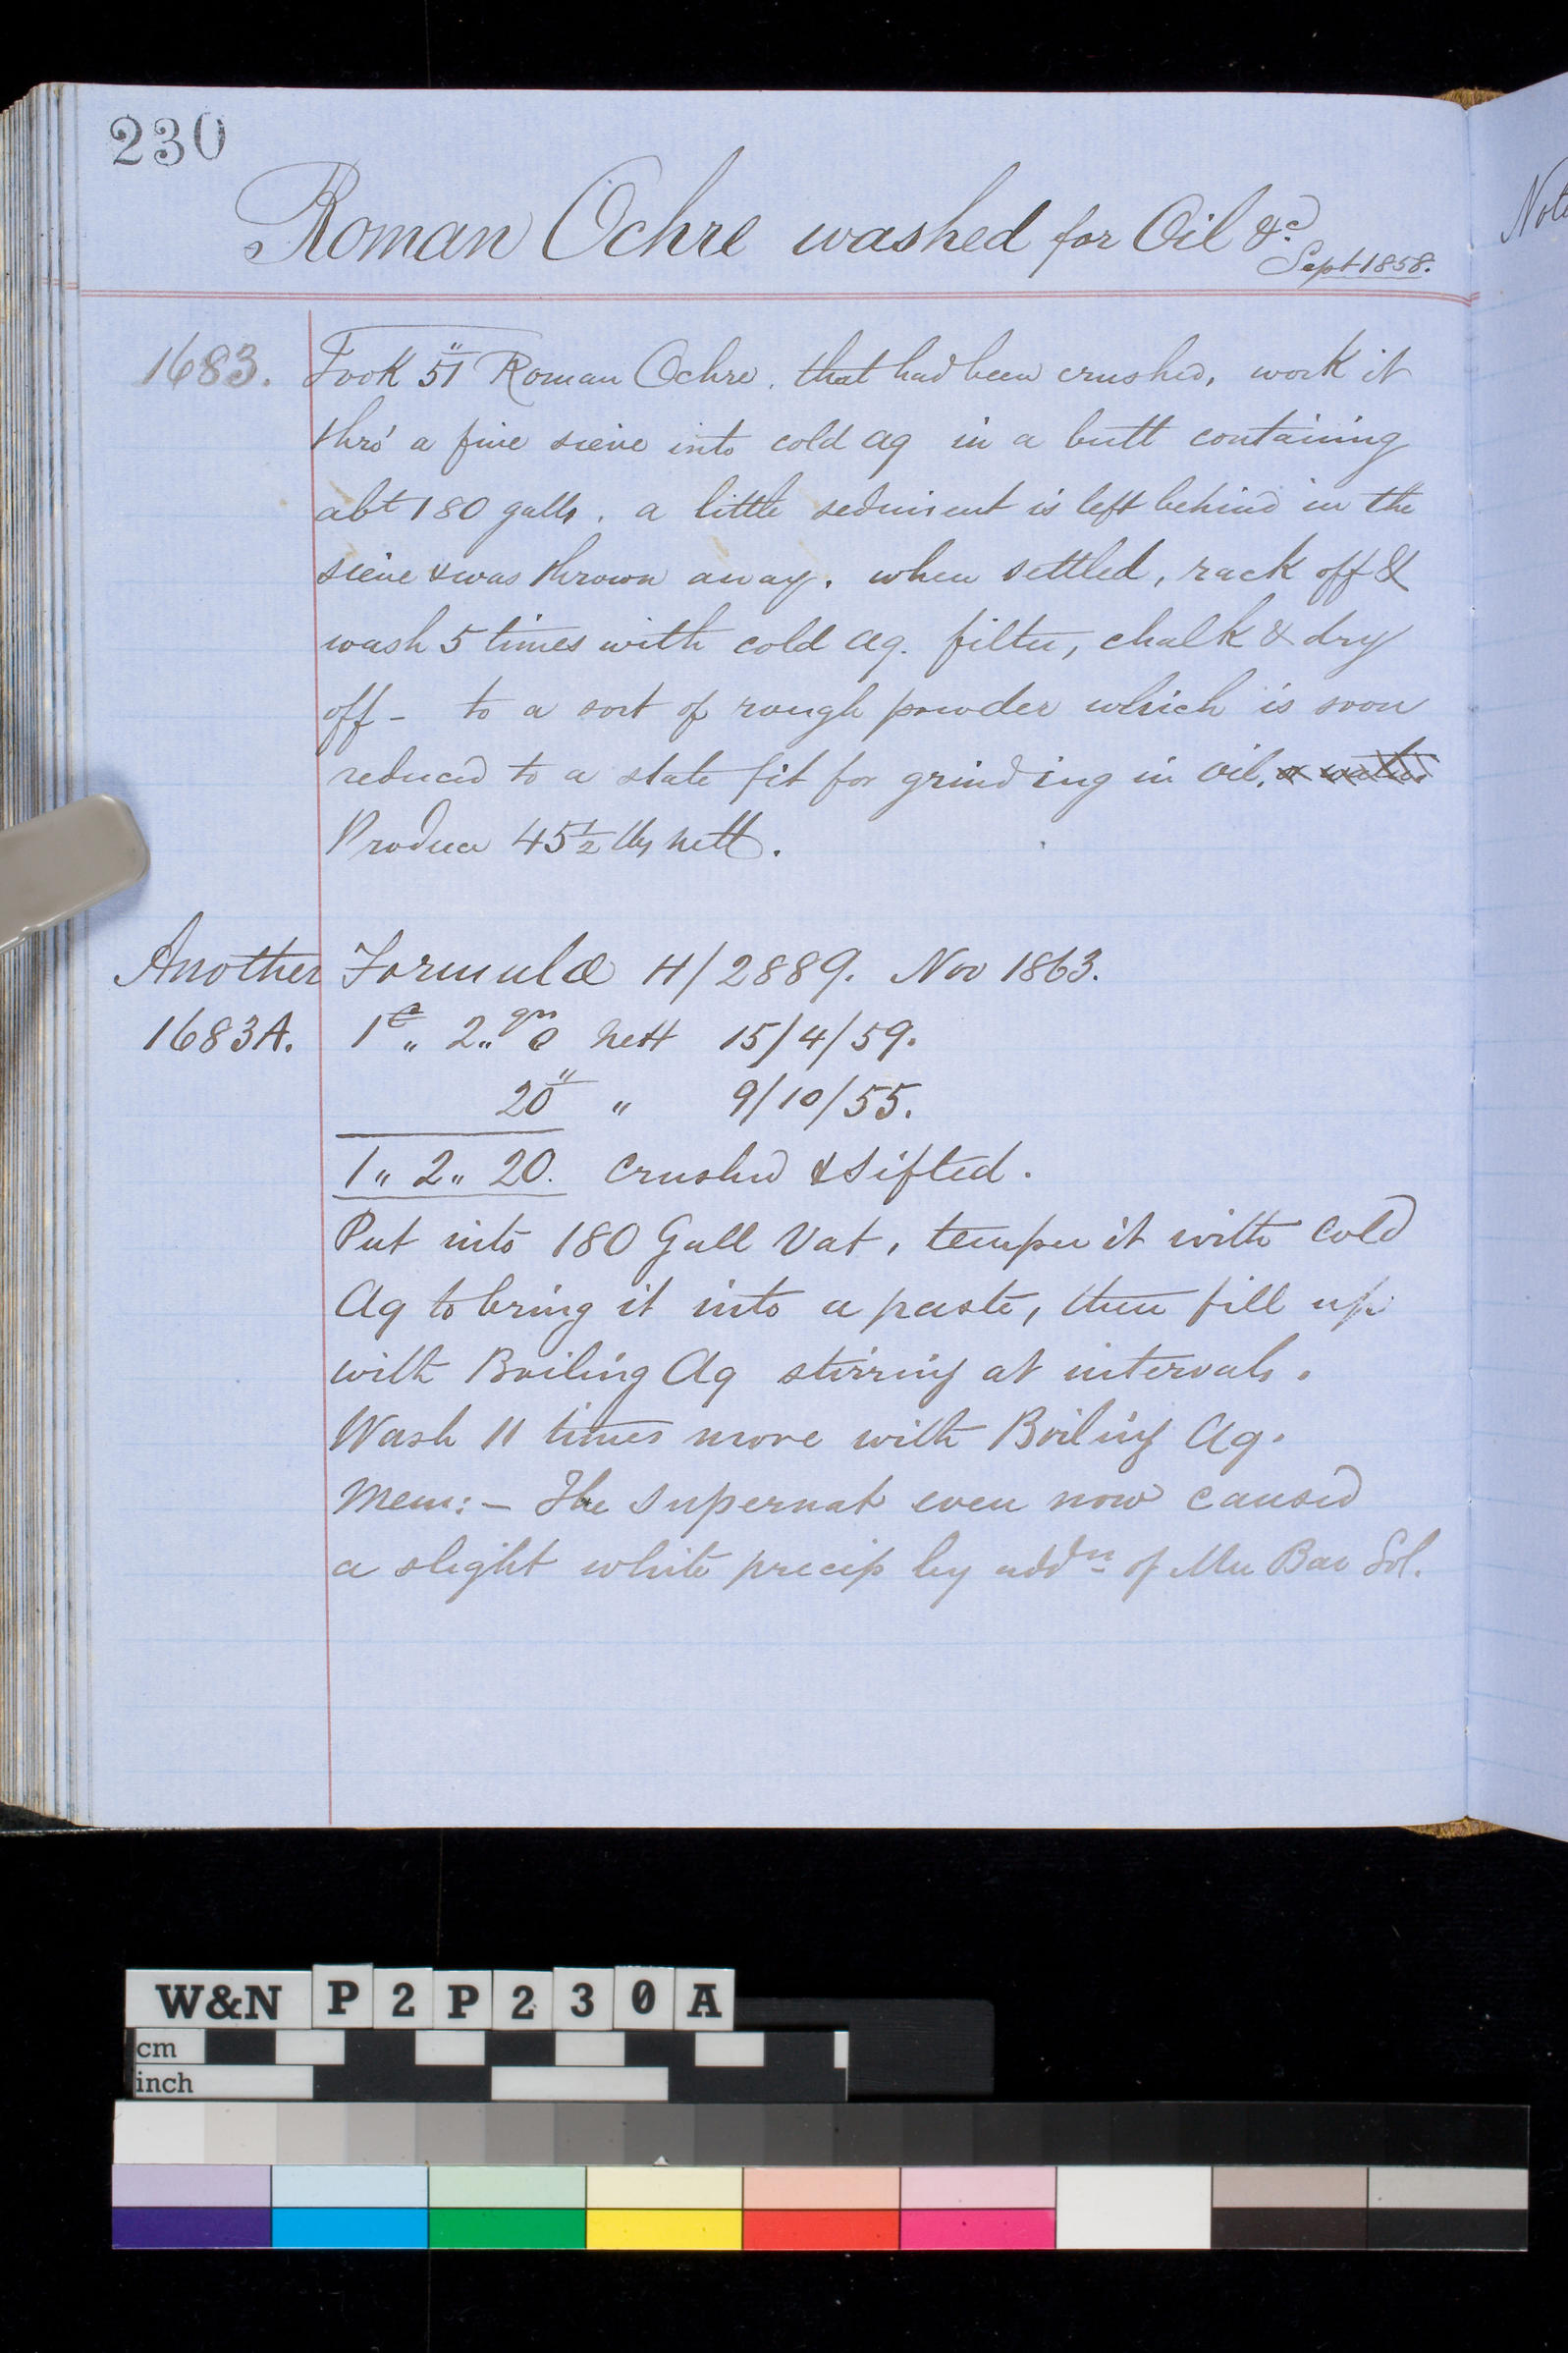 230
Roman Ochre washed for Oil &c
Sept 1858.
1683. Took 51" Roman Ochre, that had been crushed, work it
thro' a fine sieve into cold aq in a butt containing
abt 180 galls. a little sediment is left behind in the
sieve & was thrown away. when settled, rack off &
wash 5 times with cold aq. filter, chalk & dry
off – to a sort of rough powder which is soon
reduced to a state fit for grinding in oil. or water
Produce 45½ lbs nett.
Another Formula H/2889. Nov 1863.
1683A. 1c " 2 " qrs nett 15/4/59.
20" " 9/10/55.
1 " 2 " 20. Crushed & Sifted.
Put into 180 Gall Vat, temper it with Cold
Aq to bring it into a paste, then fill up
with Boiling Aq stirring at intervals.
Wash 11 times more with Boiling Aq.
Mem: – The Supernat even now caused
a slight white precip by addn of Mu Bar Sol.
Not
W&N P2P230A
cm
inch